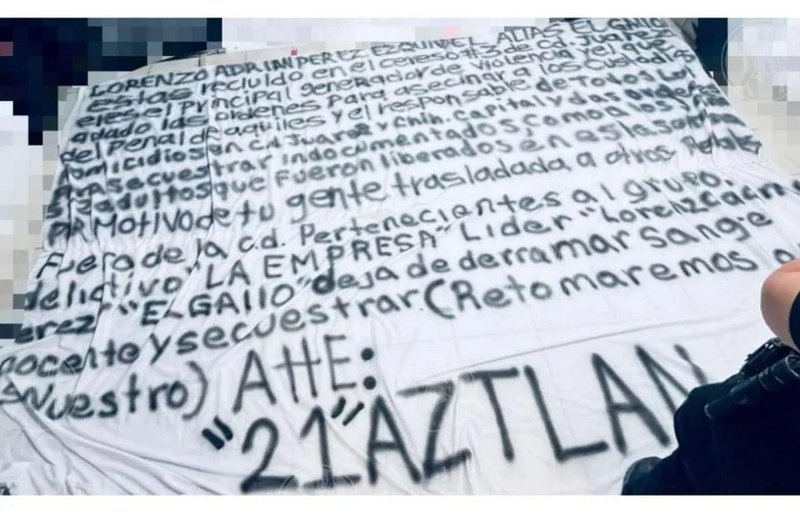 LORENZO ADRIAN PEREZ EZQUIVEL ALIAS EL GALLO
estas recluido en el cereso #3 de Cd. Juarez
eres el principal generador de violencia y el que
a dado las ordenes para asecinar a los custodios
del penal de aquiles y el responsable de todos los
omicidios en Cd. Juarez y Chih. Capital y das ordenes
para secuestrar indocumentados, como a los
adultos que fueron liberados en esta semana
por Motivo de tu gente trasladada a otros Penales
Fuera de la c.d. Pertenecientes al grupo
delictivo "LA EMPRESA" Lider "Lorenzo
erez "EL GALLO" deja de derramar sangre
nocente y secuestrar (Retomaremos
Nuestro) ATTE:
"21" AZTLAN